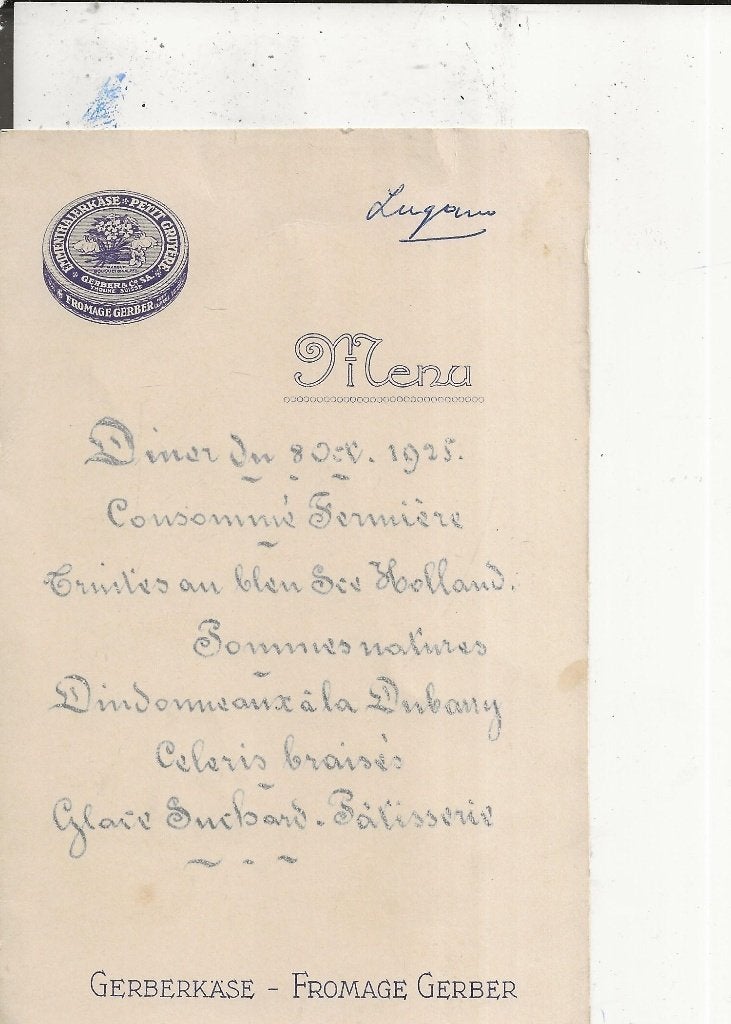 Lugano
EMMENTHALERKÄSE * PETIT GRUYÈRE
GERBER & Co. S.A.
THOUNE SUISSE
FROMAGE GERBER
Menu
Diner du 8 Oct. 1925.
Consommé Fermière
Truites au bleu Sce Holland.
Pommes natures
Dindonneaux à la Dubarry
Celeris braisés
Glace Suchard - Pâtisserie
GERBERKÄSE - FROMAGE GERBER